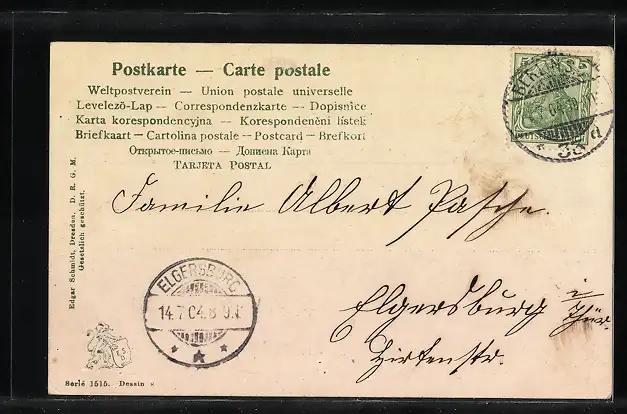 Postkarte — Carte postale
Weltpostverein — Union postale universelle
Levelező-Lap — Correspondenzkarte — Dopisnice
Karta korespondencyjna — Korespondenčni listek
Briefkaart — Cartolina postale — Postcard — Brefkort
Открытое-письмо — Дописна Карта
TARJETA POSTAL
Edgar Schmidt, Dresden. D. R. G. M.
Gesetzlich geschützt.
Familie Albert Pasche.
ELGERSBURG
14.7.04.8
Elgersburg i/Thür.
Hirtenstr.
Serie 1515. Dessin
BERLIN S.
33 d